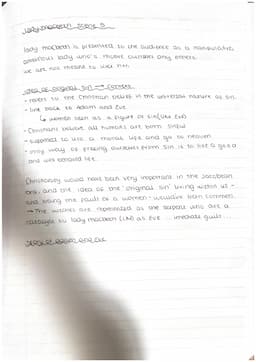 Lady macbeth scene 5
lady macbeth is presented to the audience as a manipulative
ambitious lady who's more
we are not meant to like her.
idea of original sin → (context)
- refers to the Christian belief in the universal nature of sin.
- link back to Adam and Eve
↳ women seen as a figure of sin (like Eve)
- Christians believe all humans are born sinful
- supposed to live a moral life and go to heaven
- only way of freeing ourselves from sin is to live a good
and well behaved life.
Christianity would have been very important in the Jacobean
era, and the idea of the 'original sin' living within us -
and being the fault of a women - would've been common.
→ The witches are represented as the serpent who are a
catalyst to lady macbeth (LM) as Eve ... immediate guilt...